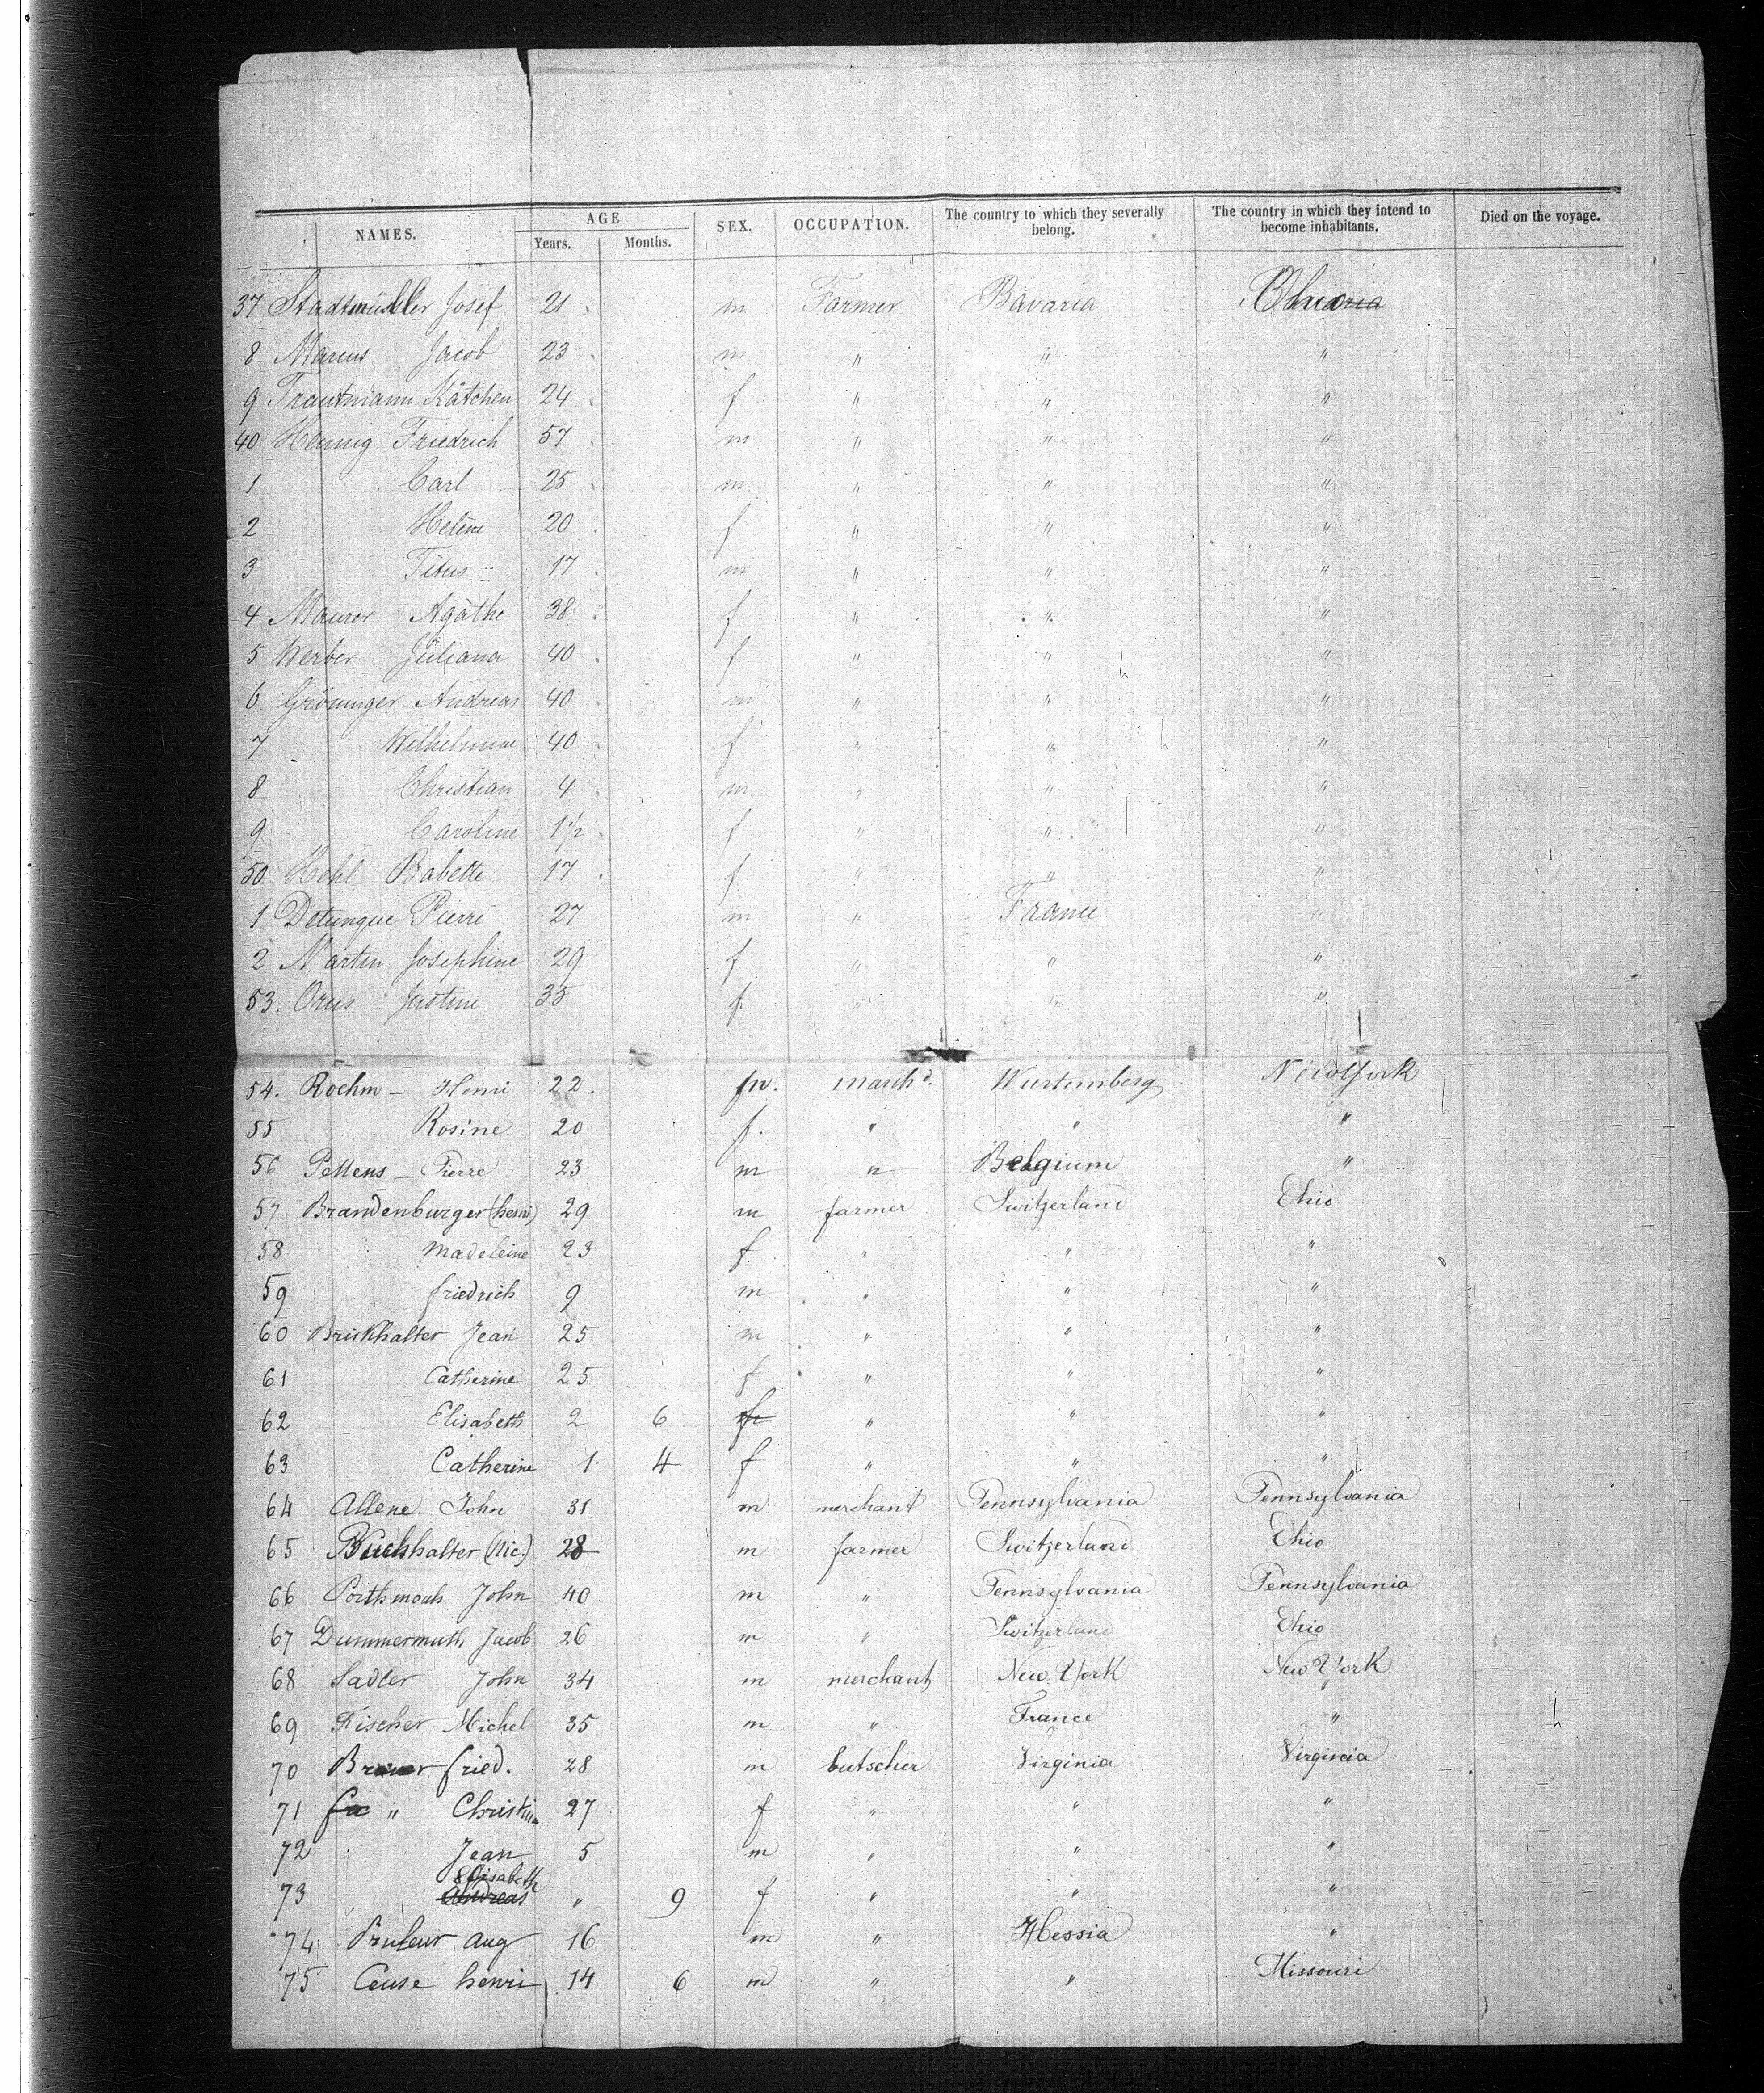 NAMES. AGE SEX. OCCUPATION. The country to which they severally belong. The country in which they intend to become inhabitants. Died on the voyage.
Years. Months.
37 Stadtmüller Josef 21 m Farmer Bavaria Ohio
8 Marcus Jacob 23 m " " "
9 Trautmann Kätchen 24 f " " "
40 Hennig Friedrich 57 m " " "
1 Carl 25 m " " "
2 Helène 20 f " " "
3 Titus 17 m " " "
4 Maurer Agathe 38 f " " "
5 Werber Juliana 40 f " " "
6 Gröninger Andreas 40 m " " "
7 Wilhelmine 40 f " " "
8 Christian 4 m " " "
9 Caroline 1½ f " " "
50 Hehl Babette 17 f " " "
1 Detunque Pierre 27 m " France "
2 Martin Josephine 29 f " " "
53. Orus Justine 35 f " " "
54. Roehm - Henri 22. m. march^d. Wurtemberg New York
55 Rosine 20 f. " " "
56 Pettens - Pierre 23 m " Belgium "
57 Brandenburger (henri) 29 m farmer Switzerland Ohio
58 Madeleine 23 f " " "
59 friedrich 9 m " " "
60 Briskhalter Jean 25 m " " "
61 Catherine 25 f " " "
62 Elisabeth 2 6 f " " "
63 Catherine 1 4 f " " "
64 Allene John 31 m merchant Pennsylvania Pennsylvania
65 Buckhalter (Nic.) 28 m farmer Switzerland Ohio
66 Porthmouh John 40 m " Pennsylvania Pennsylvania
67 Dummermuth Jacob 26 m " Switzerland Ohio
68 Sadler John 34 m merchant New York New York
69 Fischer Michel 35 m " France "
70 fried. 28 m butscher Virginia Virginia
71 " Christine 27 f " " "
72 Jean 5 m " " "
Elisabeth
73 Andreas " 9 f " " "
74 Aug 16 m " Hessia "
75 Ceuse henri 14 6 m " " Missouri